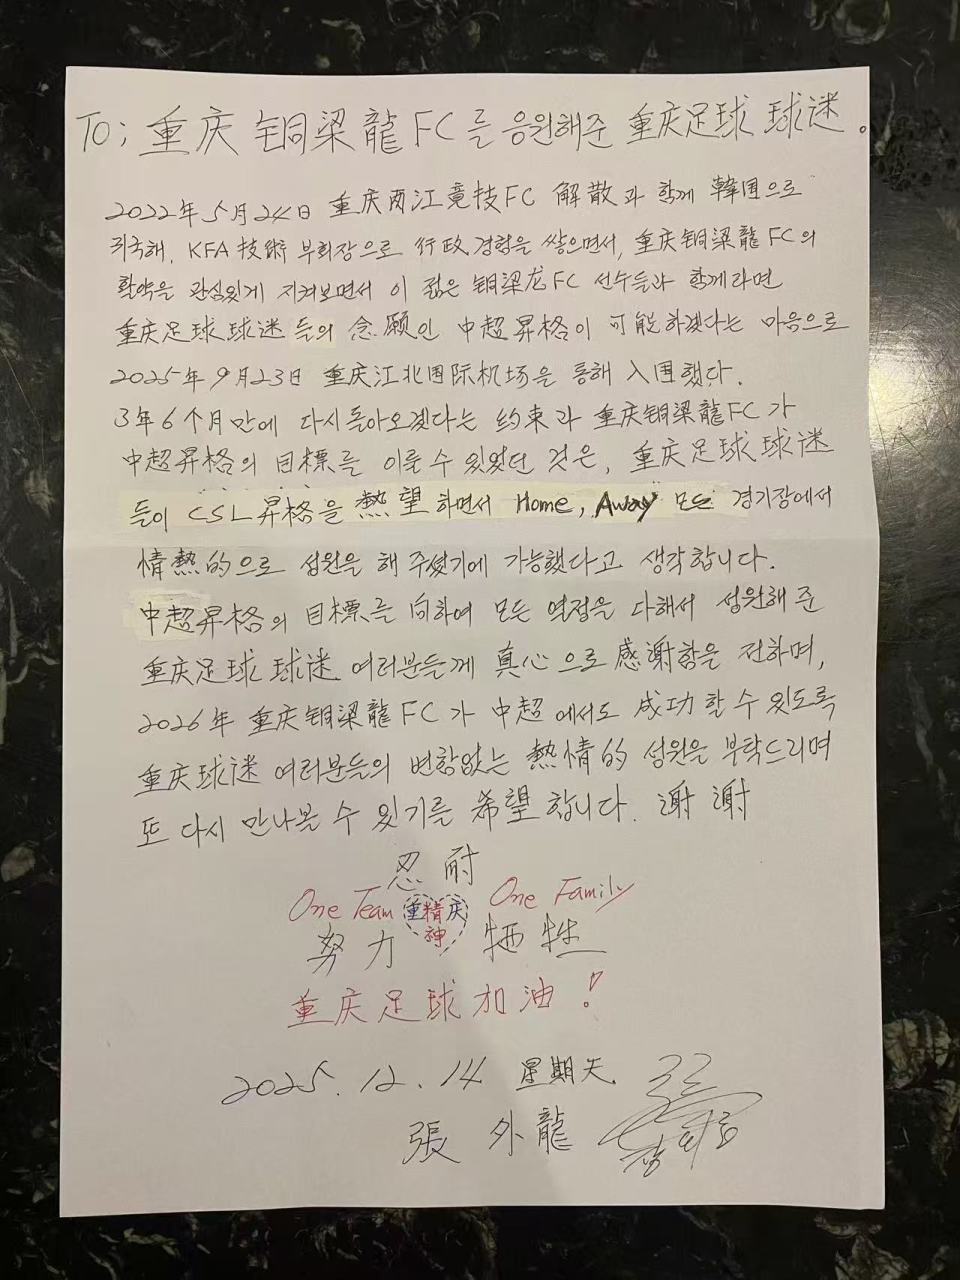 To; 重庆 铜梁龍FC를 응원해준 重庆足球 球迷。
2022年 5月 24日 重庆两江竞技FC 解散과 함께 韓国으로
귀국해, KFA 技術 부회장으로 行政 경험을 쌓으면서, 重庆铜梁龍 FC의
활약을 관심있게 지켜보면서 이 젊은 铜梁龙FC 선수들과 함께라면
重庆足球球迷 들의 念願인 中超昇格이 可能하겠다는 마음으로
2025年 9月 23日 重庆江北国际机场을 통해 入国했다.
3年 6个月만에 다시 돌아오겠다는 约束과 重庆铜梁龍FC가
中超昇格의 目標를 이룰 수 있었던 것은, 重庆足球球迷
들이 CSL昇格을 熱望하면서 Home, Away 모든 경기장에서
情熱的으로 성원을 해 주셨기에 가능했다고 생각합니다.
中超昇格의 目標를 向하여 모든 열정을 다해서 성원해 준
重庆足球 球迷 여러분들께 真心으로 感谢함을 전하며,
2026年 重庆铜梁龍FC가 中超에서도 成功할 수 있도록
重庆球迷 여러분들의 변함없는 熱情的 성원을 부탁드리며
또 다시 만나볼 수 있기를 希望합니다. 谢谢
忍耐
One Team 重精庆 One Family
神
努力 牺牲
重庆足球加油!
2025. 12. 14 星期天
張 外龍